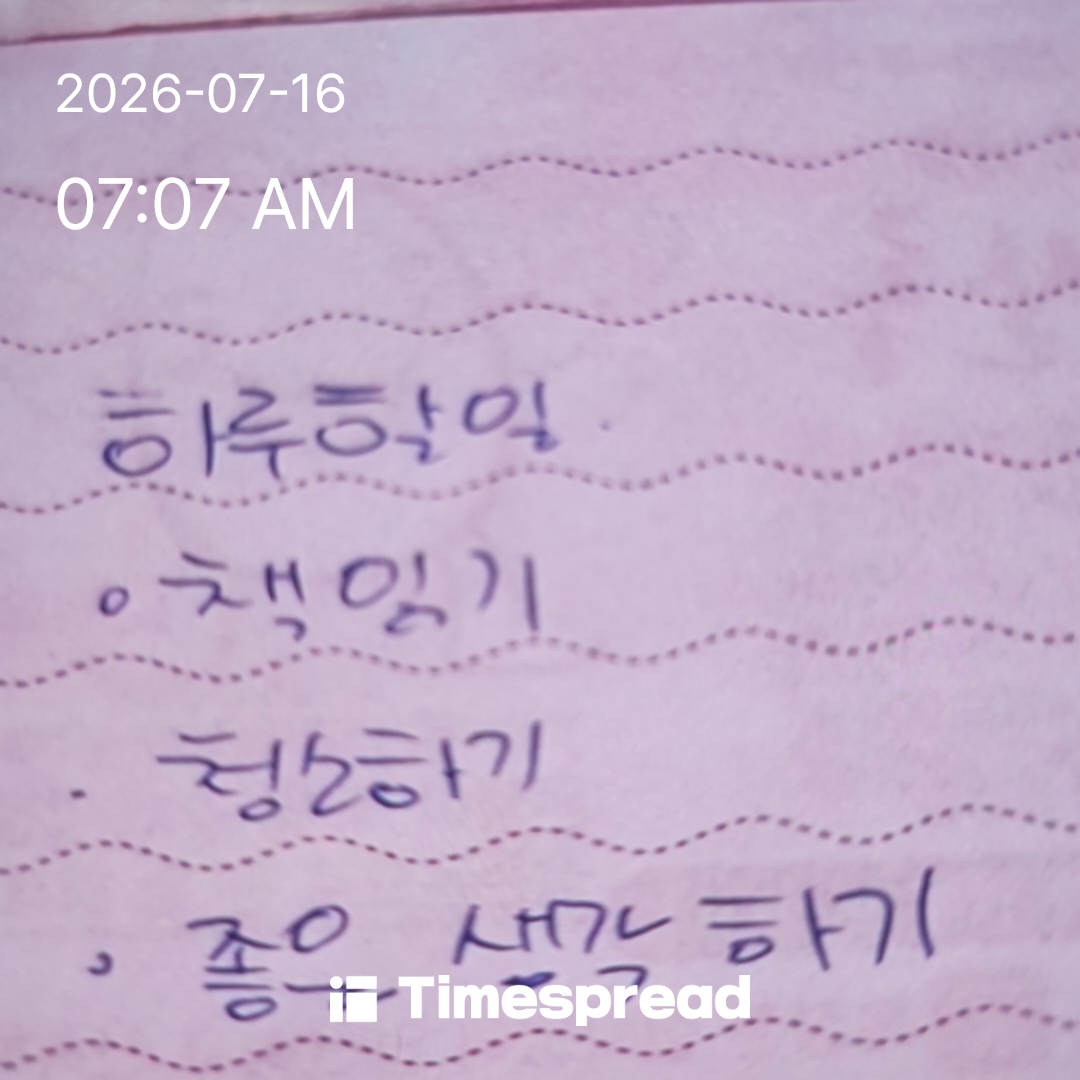 2026-07-16
07:07 AM
하루할일.
• 책읽기
· 청소하기
· 좋은 생각하기
Timespread